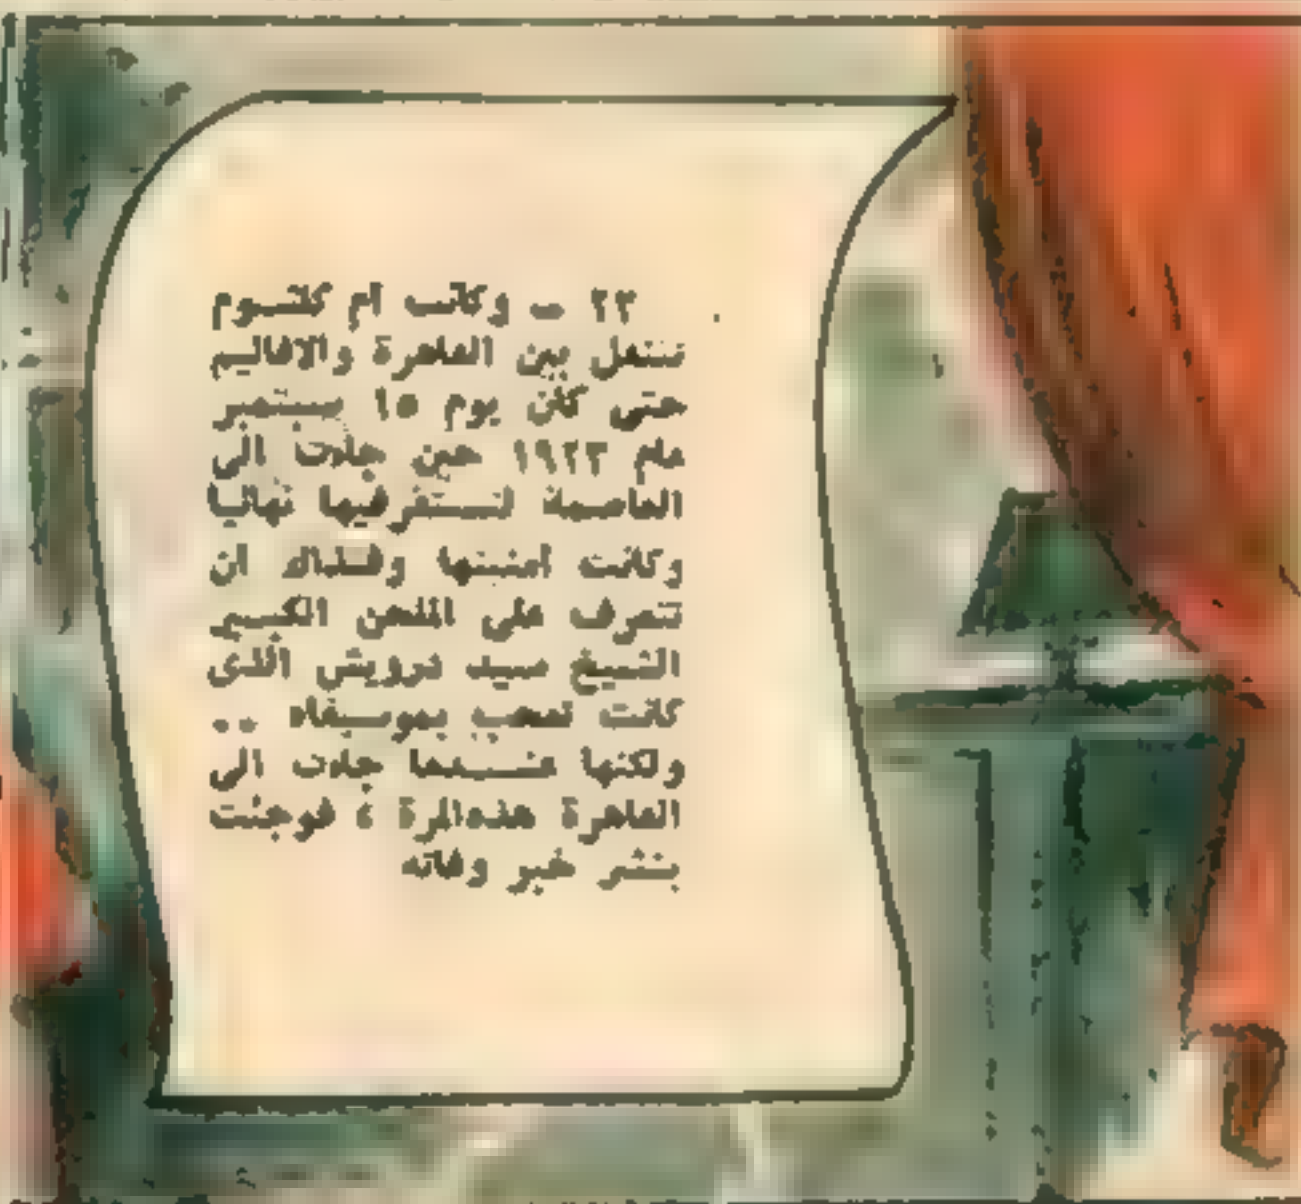 ٢٣ — وكانت ام كلثوم
تنتقل بين القاهرة والاقاليم
حتى كان يوم ١٥ سبتمبر
عام ١٩٢٣ حين جاءت الى
العاصمة لتستقر فيها نهائيا
وكانت أمنيتها وقتذاك ان
تتعرف على الملحن الكبير
الشيخ سيد درويش الذى
كانت تعجب بموسيقاه ..
ولكنها عندما جاءت الى
القاهرة هذه المرة ، فوجئت
بنشر خبر وفاته